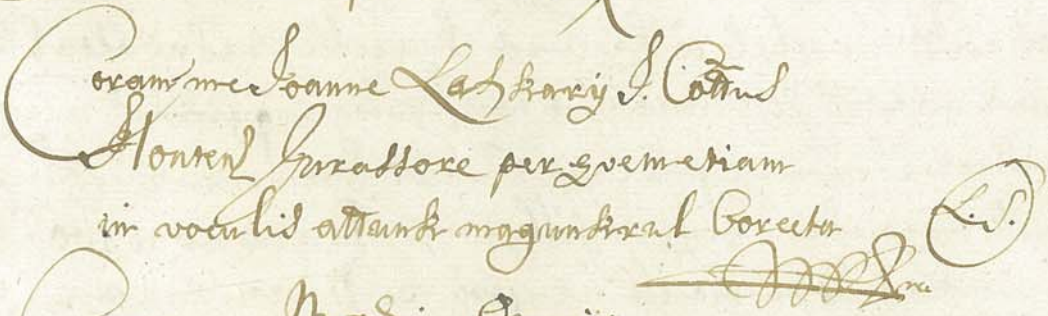 Coram me Joanne Latzkary I. Cottus
Honten Jurassore per quem etiam
in voculis attunk magunkrul Correcta L.S.